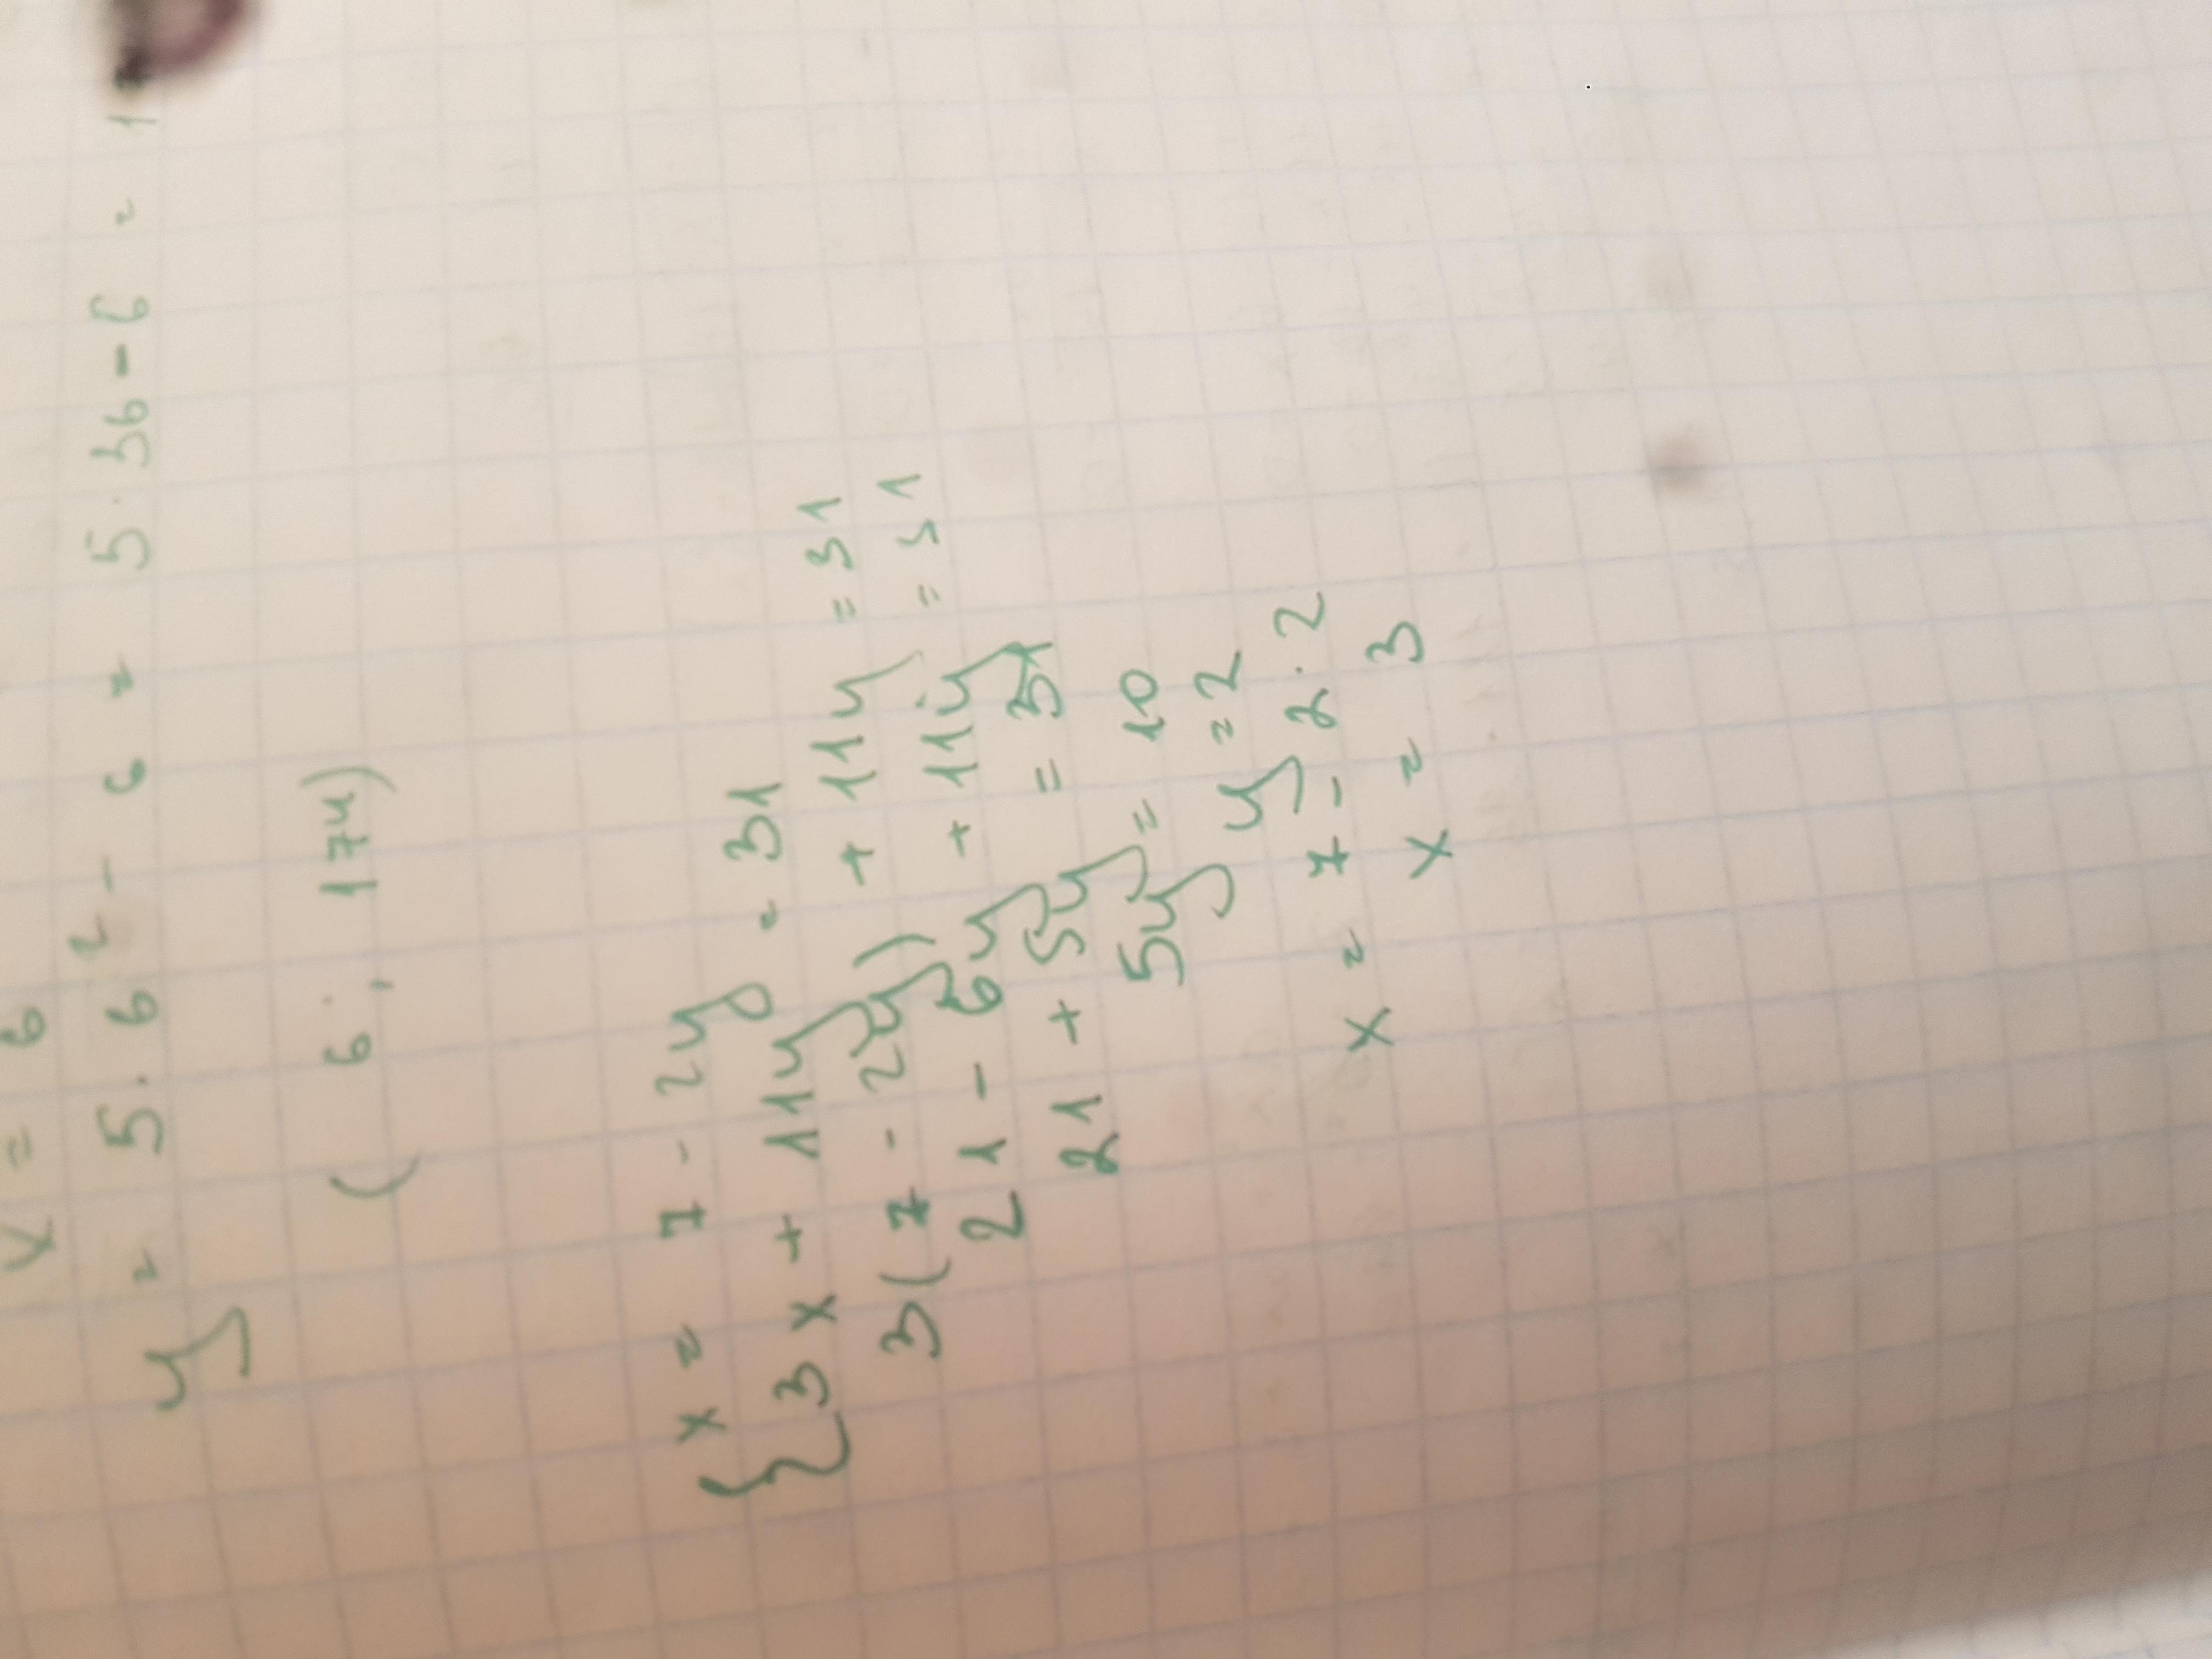 x = 6
y = 5 · 6² - 6 = 5 · 36 - 6 = 1
( 6 ; 174)
{ x = 7 - 2y
3x + 11y = 31
3(7 - 2y) + 11y = 31
21 - 6y + 11y = 31
21 + 5y = 31
5y = 10
y = 2
x = 7 - 2 · 2
x = 3